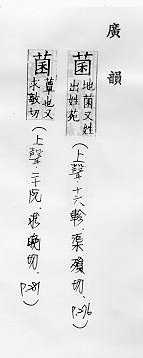 廣韻
菌 地菌又姓出姓苑（上聲十六軫．渠殞切．P.276）
菌 蕈也又求敏切（上聲二十阮．求晚切．P.281）